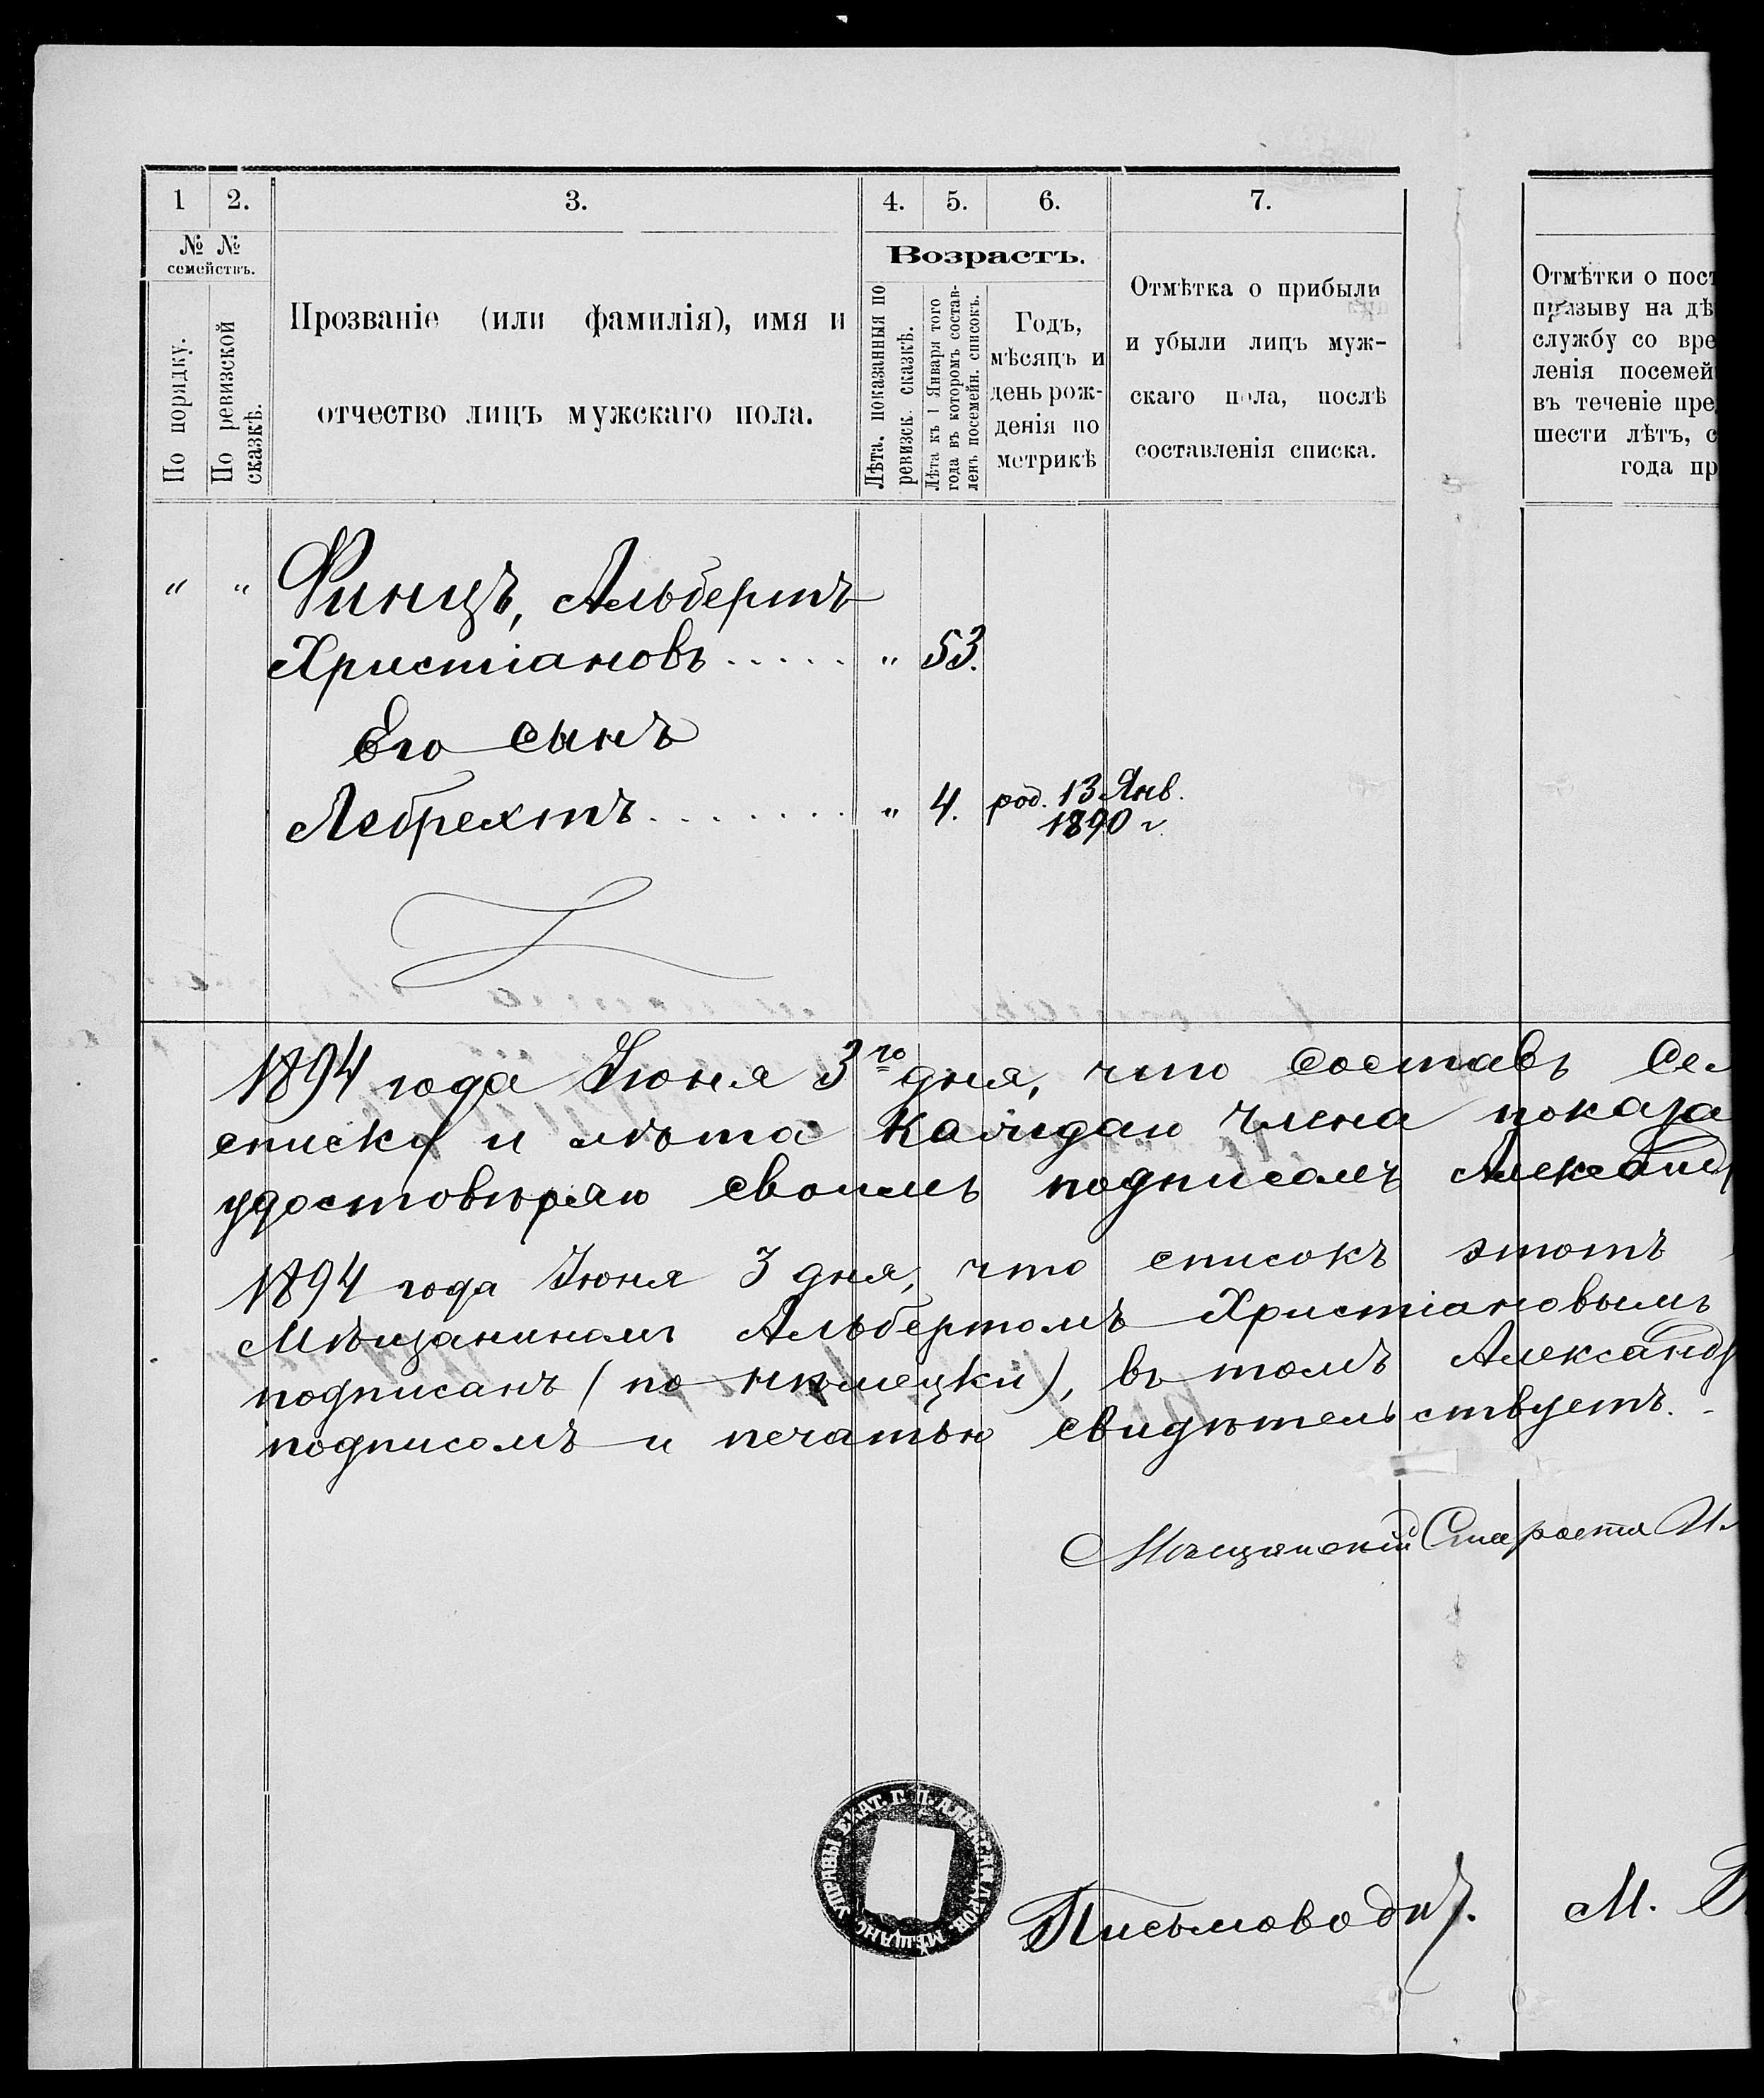 1 2. 3. 4. 5. 6. 7.
№ №
семействъ.
По порядку.
По ревизской
сказкѣ.
Прозваніе (или фамилія), имя и
отчество лицъ мужскаго пола.
Возрастъ.
Лѣта, показанныя по
ревизск. сказкѣ.
Лѣта къ 1 Января того
года въ которомъ состав-
ленъ посемейн. списокъ.
Годъ,
мѣсяцъ и
день рож-
денія по
метрикѣ
Отмѣтка о прибыли
и убыли лицъ муж-
скаго пола, послѣ
составленія списка.
Отмѣтки о пос
призыву на дѣ
службу со вре
ленія посемей
въ теченіе пре
шести лѣтъ, с
года пр
" " Финцъ, Альбертъ
Христіановъ..... " 53.
Его сынъ
Лебрехтъ........ " 4. род. 13 Янв.
1890 г.
1894 года Іюня 3го дня, что составъ се
списка и лѣта каждаго члена показа
удостовѣряю своимъ подписомъ Александ
1894 года Іюня 3 дня, что списокъ этотъ
Мѣщаниномъ Альбертомъ Христіановымъ
подписанъ (по нѣмецки), въ томъ Александ
подписомъ и печатью свидѣтельствуетъ.
Мѣщанскій Староста И.
ЕКАТ. Г. П. АЛЕКСАНДРОВ. МѢЩАНС. УПРАВЫ
Письмовод М.